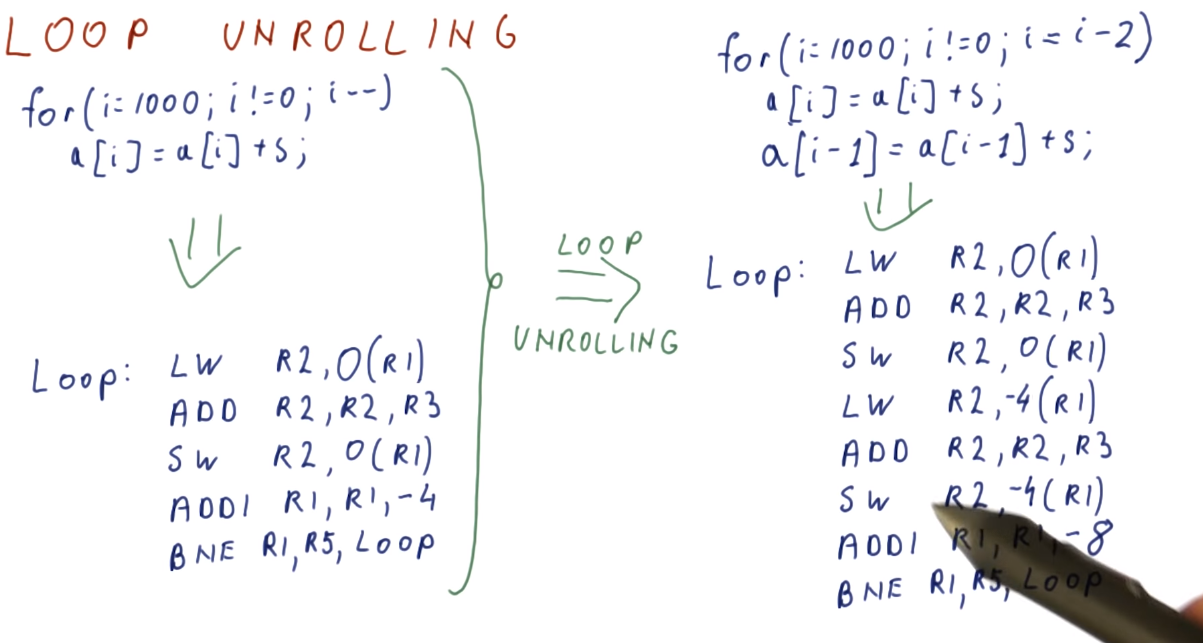 LOOP UNROLLING
for(i=1000; i!=0; i--)
a[i]=a[i]+s;
Loop: LW R2,0(R1)
ADD R2,R2,R3
SW R2,0(R1)
ADDI R1,R1,-4
BNE R1,R5,Loop
LOOP
UNROLLING
for(i=1000; i!=0; i=i-2)
a[i]=a[i]+s;
a[i-1]=a[i-1]+s;
Loop: LW R2,0(R1)
ADD R2,R2,R3
SW R2,0(R1)
LW R2,-4(R1)
ADD R2,R2,R3
SW R2,-4(R1)
ADDI R1,R1,-8
BNE R1,R5,Loop